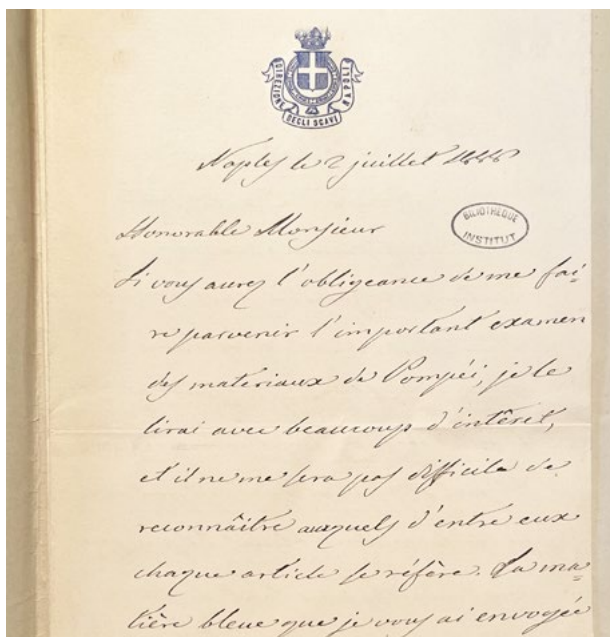 DIREZIONE DEGLI SCAVI NAPOLI
Naples le 2 juillet 1886
BILIOTHEQUE
INSTITUT
Honorable Monsieur
Si vous aurez l'obligeance de me fai-
re parvenir l'important examen
des matériaux de Pompéi, je le
lirai avec beaucoup d'intêret,
et il ne me sera pas difficile de
reconnâitre auxquels d'entre eux
chaque article se réfère. La ma-
tière bleue que je vous ai envoyée